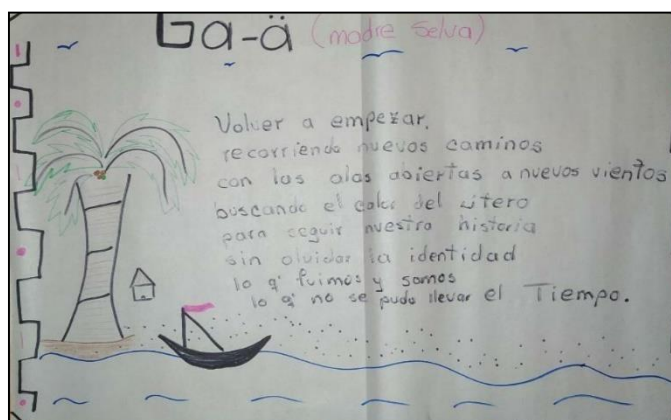 Ga-ä (madre selva)
Volver a empezar,
recorriendo nuevos caminos
con las alas abiertas a nuevos vientos
buscando el calor del útero
para seguir nuestra historia
sin olvidar la identidad
lo q' fuimos y somos
lo q' no se pudo llevar el Tiempo.